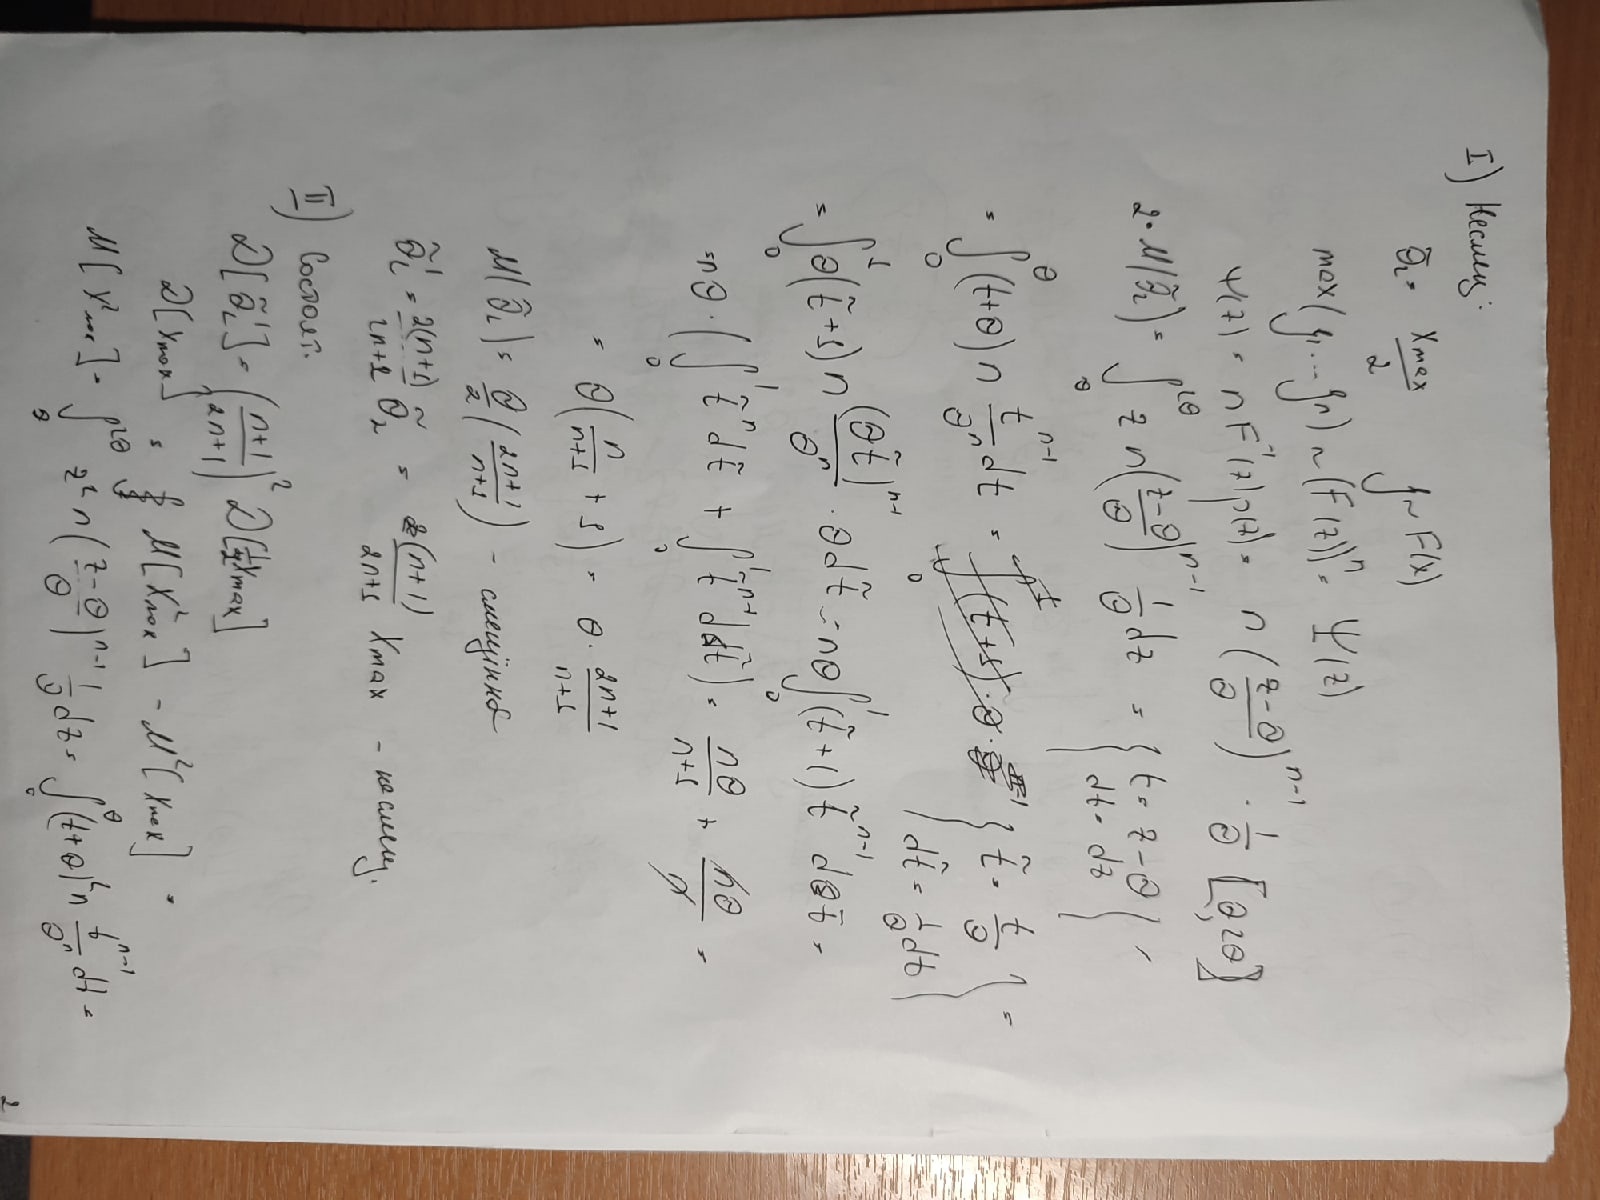 I) Несмещ:
θ̃₂ = Xmax / 2   ξ ~ F(x)
max(ξ₁...ξn) ~ (F(z))ⁿ = Ψ(z)
Ψ(z) = n F⁻¹(z) p(z) = n ((z-θ)/θ)ⁿ⁻¹ · 1/θ [θ, 2θ]
2·M(θ̃₂) = ∫_θ^{2θ} z n ((z-θ)/θ)ⁿ⁻¹ 1/θ dz = { t = z-θ, dt = dz } =
= ∫_0^θ (t+θ) n tⁿ⁻¹/θⁿ dt = { t̃ = t/θ, dt̃ = 1/θ dt } =
= ∫_0^1 θ(t̃+1) n (θt̃)ⁿ⁻¹/θⁿ · θ dt̃ = nθ ∫_0^1 (t̃+1) t̃ⁿ⁻¹ dt̃ =
= nθ · ( ∫_0^1 t̃ⁿ dt̃ + ∫_0^1 t̃ⁿ⁻¹ dt̃ ) = nθ/(n+1) + nθ/n =
= θ( n/(n+1) + 1 ) = θ · (2n+1)/(n+1)
M(θ̃₂) = θ/2 ( (2n+1)/(n+1) ) - смещённая
θ̃₂' = 2(n+1)/(2n+1) θ̃₂ = (n+1)/(2n+1) Xmax - несмещ.
II) Состоят.
D[θ̃₂'] = ( (n+1)/(2n+1) )² D[Xmax]
D[Xmax] = M[X²max] - M²[Xmax] =
M[X²max] = ∫_θ^{2θ} z² n ((z-θ)/θ)ⁿ⁻¹ 1/θ dz = ∫_0^θ (t+θ)² n tⁿ⁻¹/θⁿ dt =
2